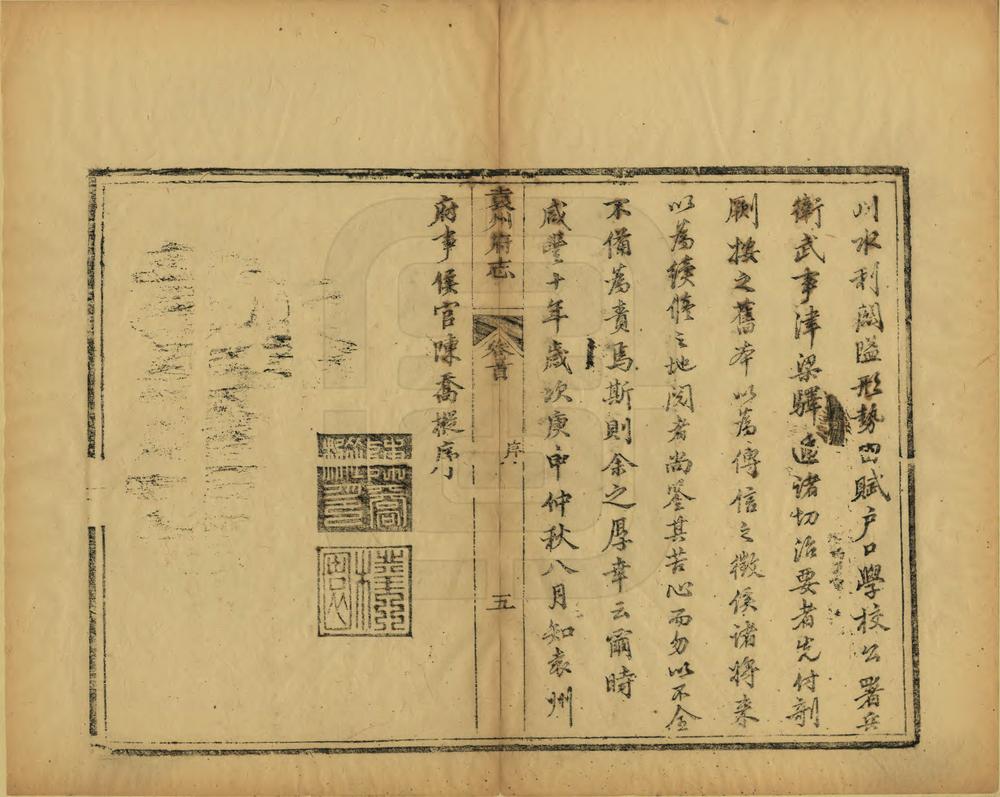 川水利關隘形勢田賦户口學校公署兵
衛武事津梁驛遞諸切治要者先付剞
劂按之舊本以為傳信之徵俟諸將来
以為續修之地閱者尚鑒其苦心而勿以不全
不備為責焉斯則余之厚幸云爾時
咸豐十年歲次庚申仲秋八月知袁州
袁州府志
卷首
序
五
府事侯官陳喬樅序